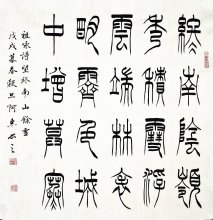 終南陰嶺
秀積雪浮
雲端林表
明霽色城
中增暮寒
祖咏詩望終南山餘雪
戊戌暮春穀旦河東